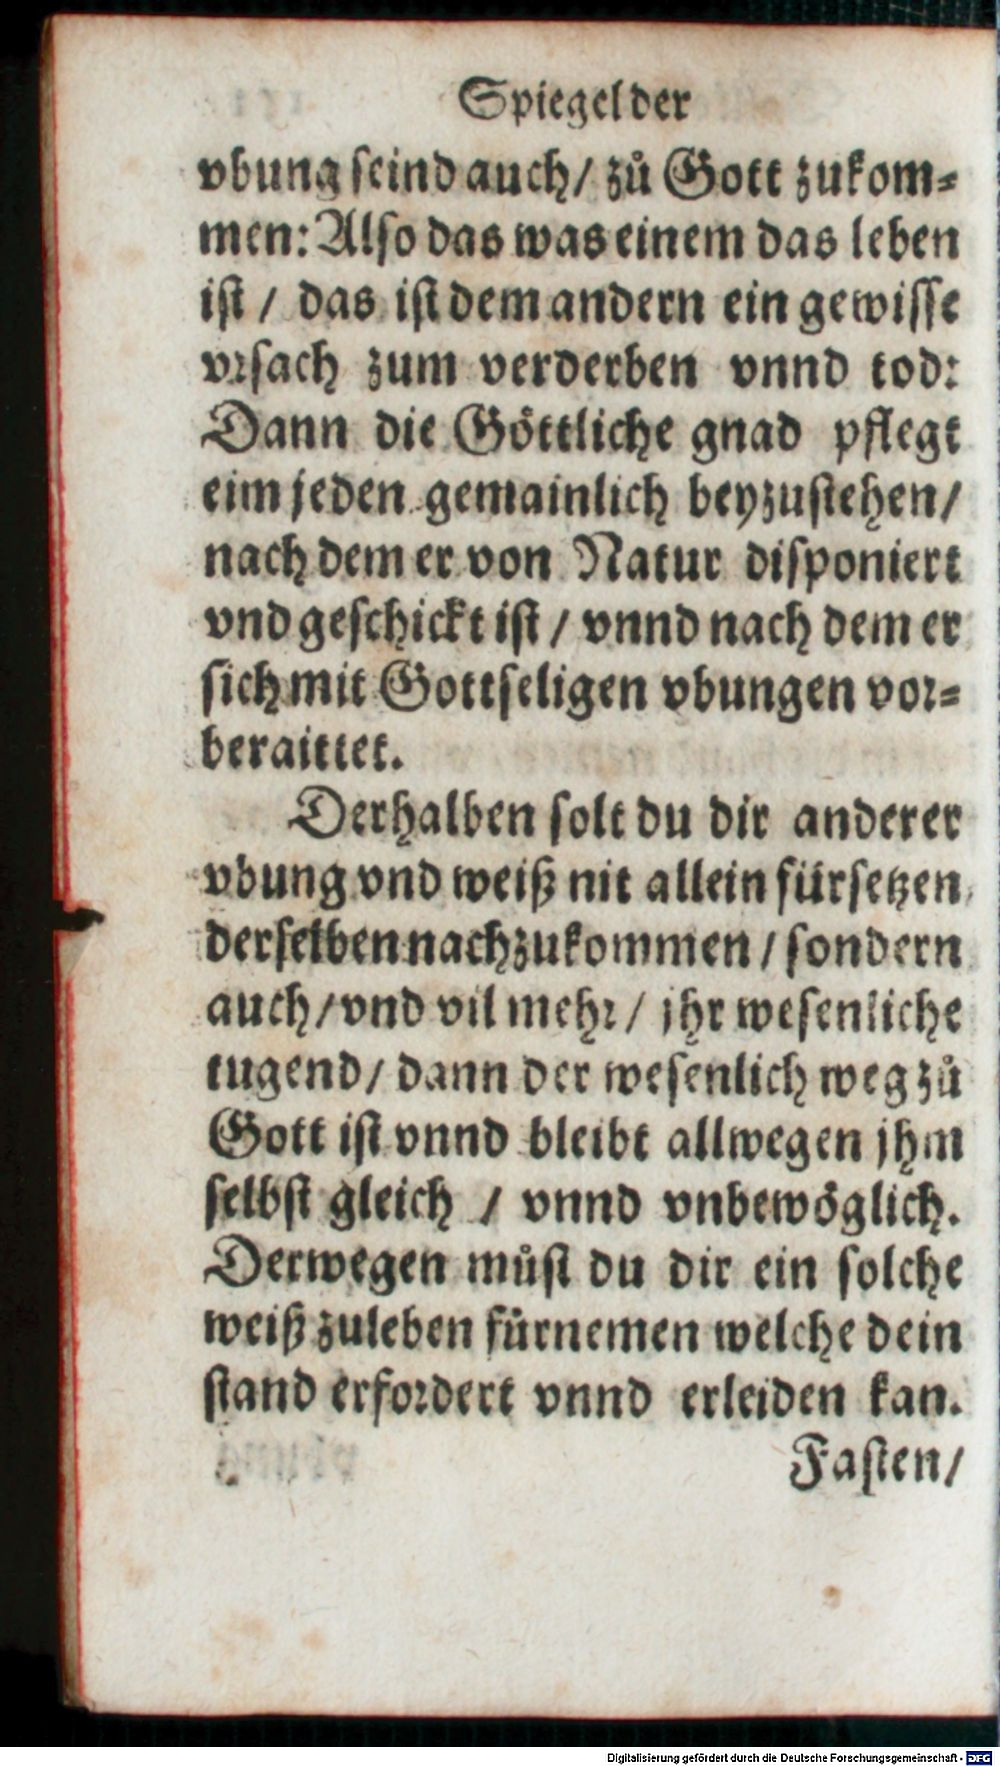 Spiegel der
vbung seind auch/ zů Gott zukom⸗
men: Also das was einem das leben
ist / das ist dem andern ein gewisse
vrsach zum verderben vnnd tod:
Dann die Göttliche gnad pflegt
eim jeden gemainlich beyzustehen/
nach dem er von Natur disponiert
vnd geschickt ist / vnnd nach dem er
sich mit Gottseligen vbungen vor⸗
beraittet.
Derhalben solt du dir anderer
vbung vnd weiß nit allein fürsetzen
derselben nachzukommen / sondern
auch/ vnd vil mehr/ jhr wesenliche
tugend/ dann der wesenlich weg zů
Gott ist vnnd bleibt allwegen jhm
selbst gleich / vnnd vnbewöglich.
Derwegen můst du dir ein solche
weiß zuleben fürnemen welche dein
stand erfordert vnnd erleiden kan.
Fasten/
Digitalisierung gefördert durch die Deutsche Forschungsgemeinschaft - DFG